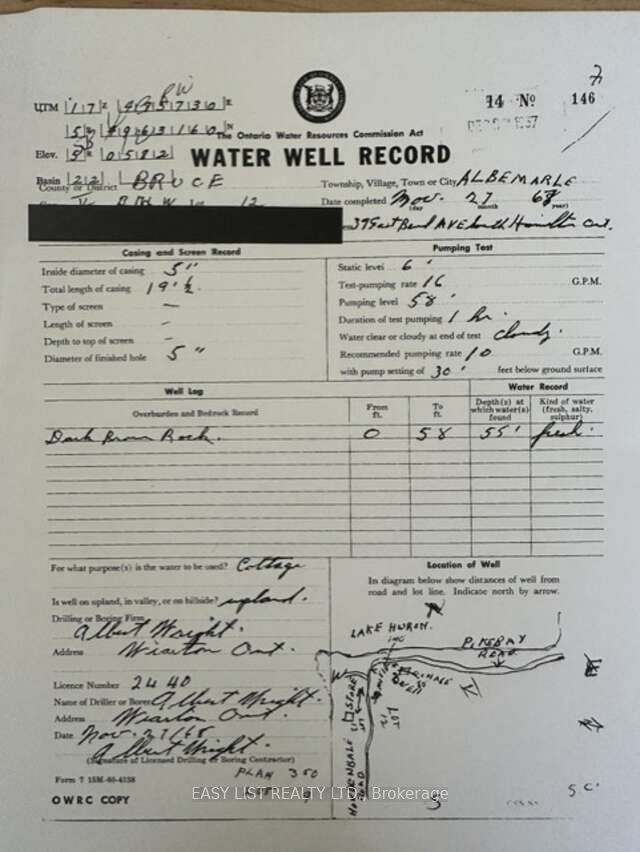 UTM 17 Z E
14 No 146
The Ontario Water Resources Commission Act
Elev. 0582
WATER WELL RECORD
Basin 22
County or District BRUCE
Township, Village, Town or City ALBEMARLE
Lot 12
Date completed Nov. 27 68
(day month year)
Ave South Hamilton Ont.
Casing and Screen Record
Inside diameter of casing 5"
Total length of casing 19' ½
Type of screen —
Length of screen –
Depth to top of screen –
Diameter of finished hole 5"
Pumping Test
Static level 6'
Test-pumping rate 16 G.P.M.
Pumping level 58'
Duration of test pumping 1 hr.
Water clear or cloudy at end of test cloudy.
Recommended pumping rate 10 G.P.M.
with pump setting of 30' feet below ground surface
Well Log
Water Record
Overburden and Bedrock Record
From ft.
To ft.
Depth(s) at which water(s) found
Kind of water (fresh, salty, sulphur)
Dark Brown Rock. 0 58 55' fresh.
For what purpose(s) is the water to be used? Cottage
Is well on upland, in valley, or on hillside? upland.
Drilling or Boring Firm
Albert Wright.
Address Wiarton Ont.
Licence Number 2440
Name of Driller or Borer Albert Wright.
Address Wiarton Ont.
Date Nov. 27/68
Albert Wright.
(Signature of Licensed Drilling or Boring Contractor)
Form 7 15M-60-4138
OWRC COPY
PLAN 350
LOT
Location of Well
In diagram below show distances of well from
road and lot line. Indicate north by arrow.
N
LAKE HURON.
PIKE BAY
ROAD
W
STORE
LOT
12
V
ROAD
S
EASY LIST REALTY LTD., Brokerage